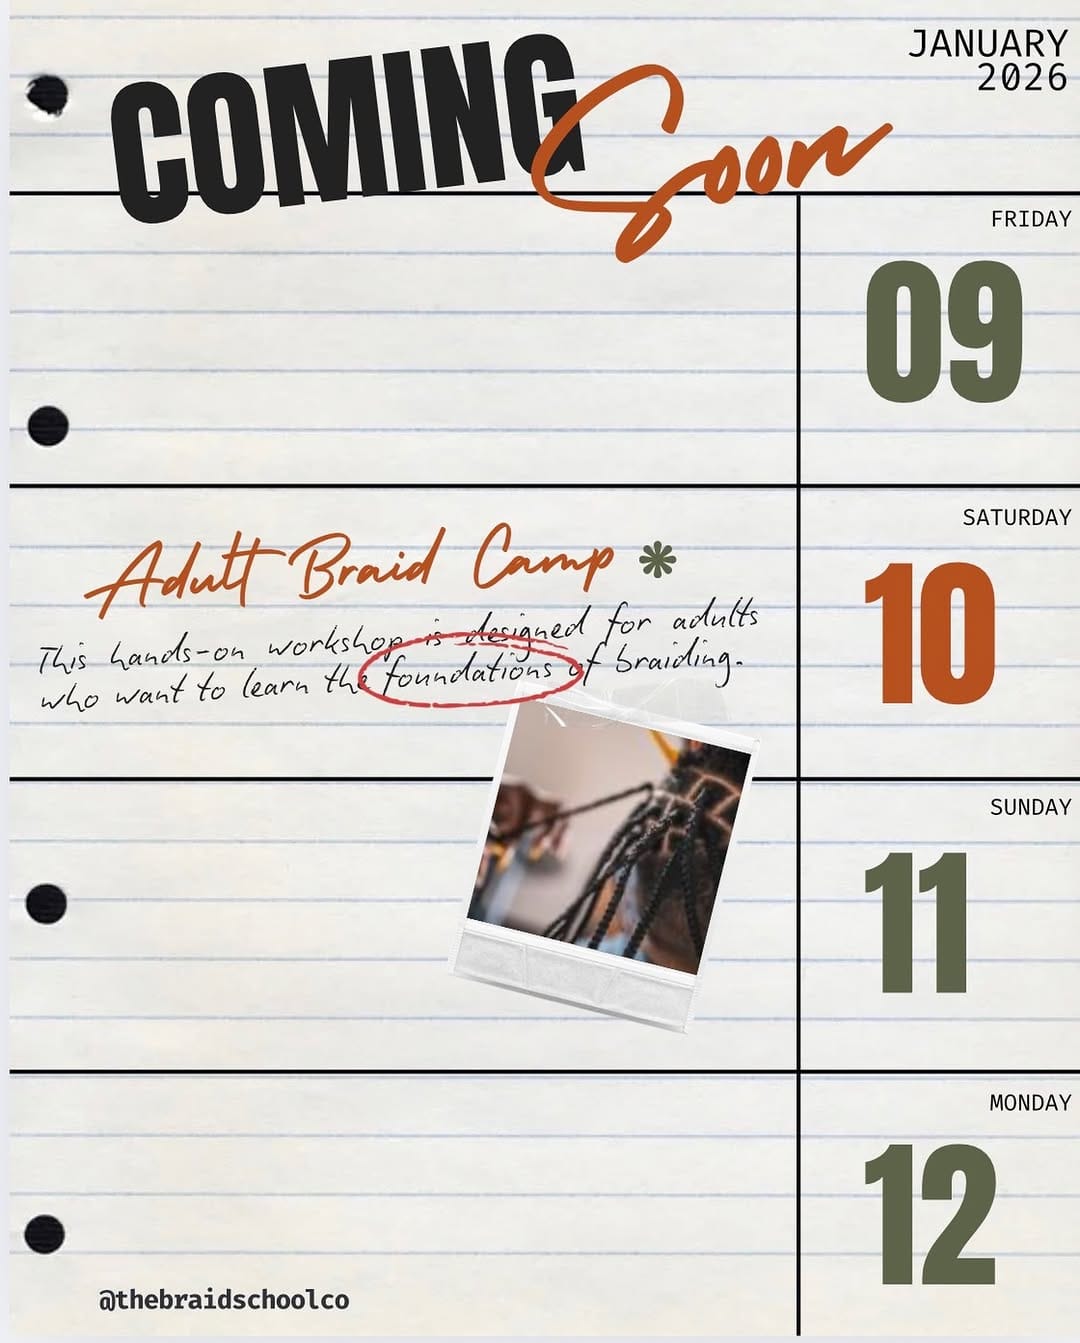 COMING Soon
JANUARY
2026
FRIDAY
09
SATURDAY
10
Adult Braid Camp
This hands-on workshop is designed for adults
who want to learn the foundations of braiding.
SUNDAY
11
MONDAY
12
@thebraidschoolco